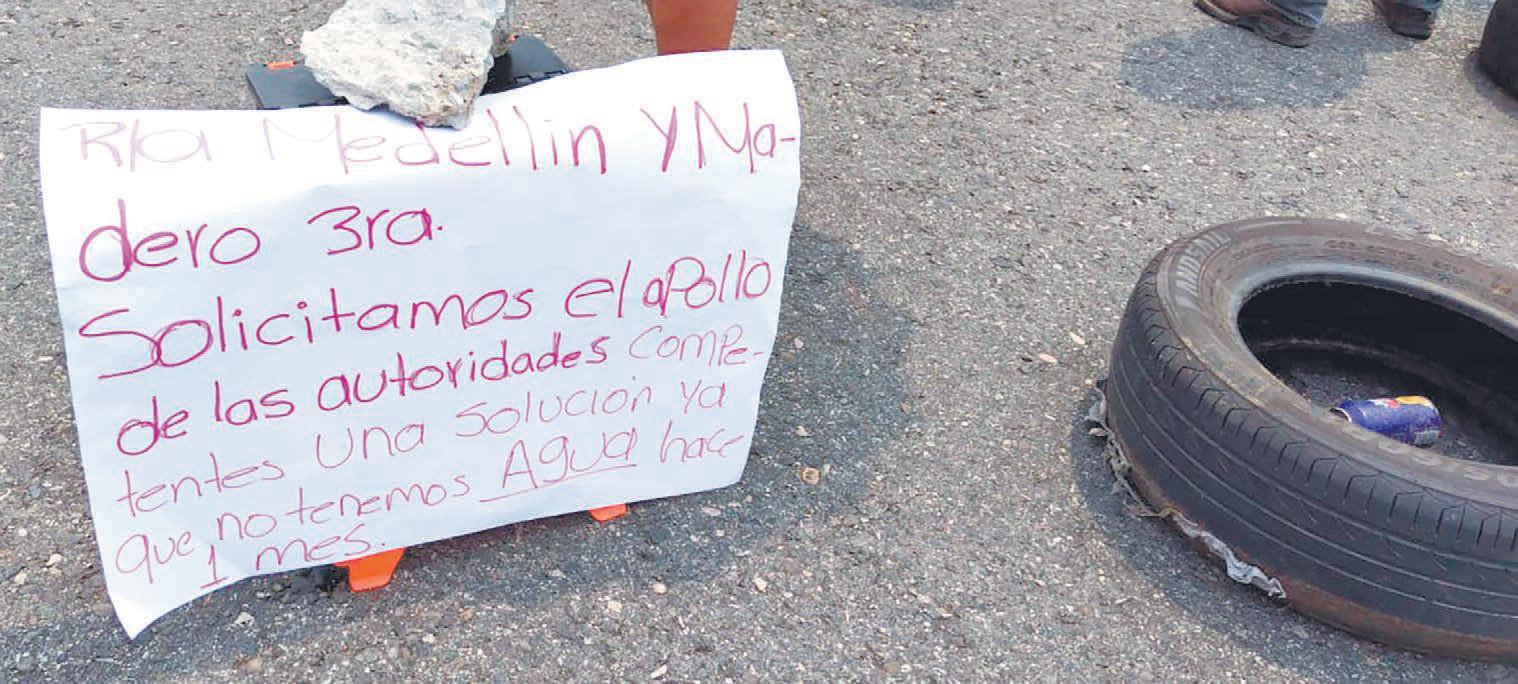 R/a Medellin Y Ma-
dero 3ra.
Solicitamos el apollo
de las autoridades compe-
tentes una solución ya
que no tenemos Agua hace
1 mes.